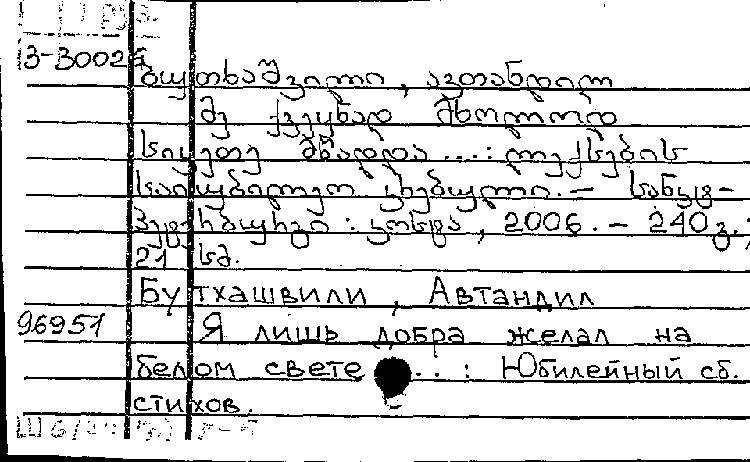 3-3002б
ბუთხაშვილი, ავთანდილ
მე ქვეყნად მხოლოდ
სიკეთე მწადდა ...: ლექსების
საიუბილეო კრებული. – სანკტ-
პეტერბურგი: კოსტა, 2006. – 240 გ.;
21 სმ.
Бутхашвили, Автандил
96951
Я лишь добра желал на
белом свете ...: Юбилейный сб.
стихов.